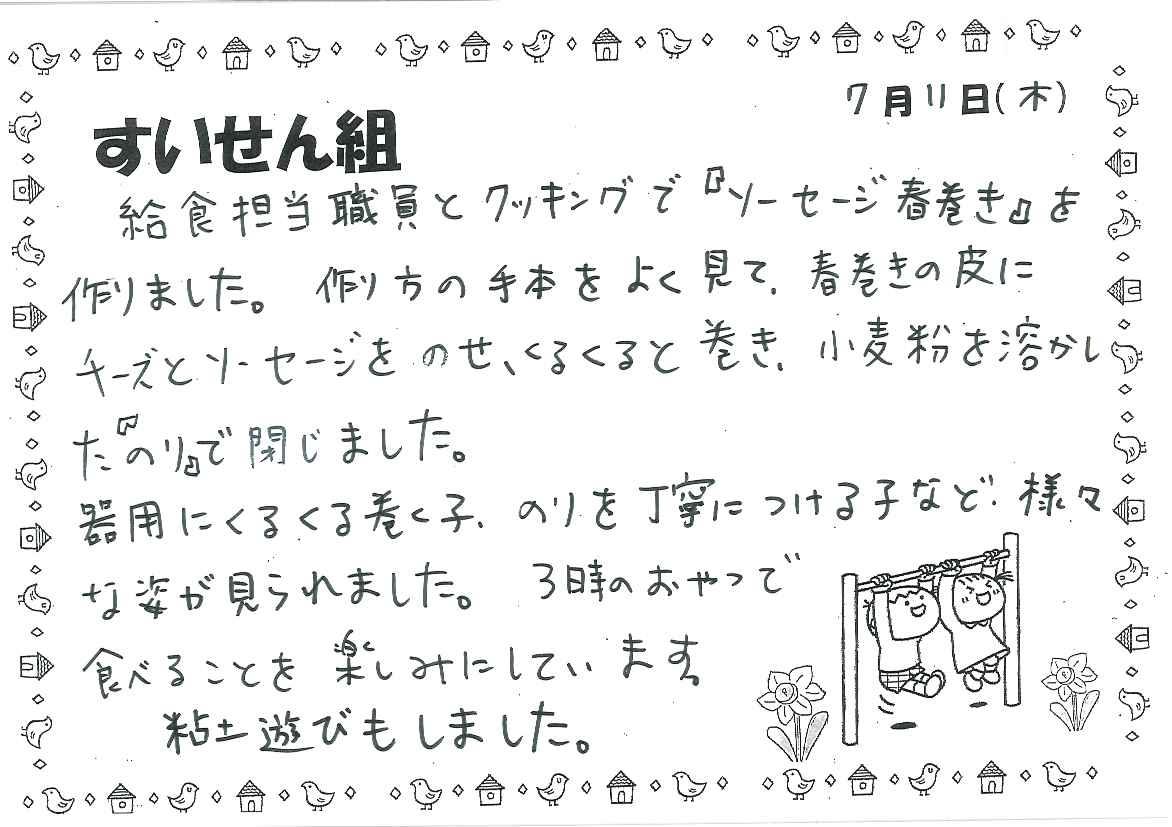 7月11日(木)
すいせん組
給食担当職員とクッキングで『ソーセージ春巻き』を
作りました。 作り方の手本をよく見て、春巻きの皮に
チーズとソーセージをのせ、くるくると巻き、小麦粉を溶かし
た『のり』で閉じました。
器用にくるくる巻く子、のりを丁寧につける子など、様々
な姿が見られました。 3時のおやつで
食べることを楽しみにしています。
粘土遊びもしました。